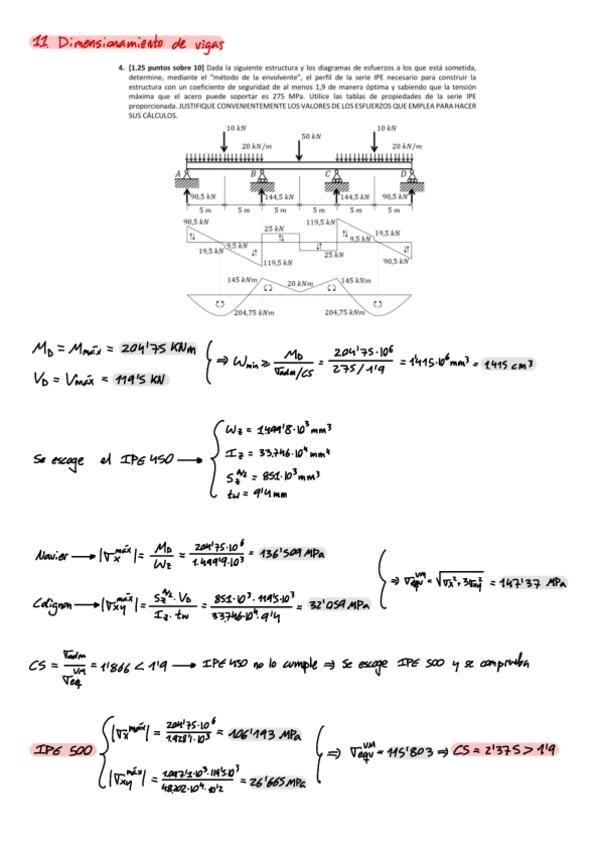 11. Dimensionamiento de vigas
4. [1.25 puntos sobre 10] Dada la siguiente estructura y los diagramas de esfuerzos a los que está sometida,
determine, mediante el "método de la envolvente", el perfil de la serie IPE necesario para construir la
estructura con un coeficiente de seguridad de al menos 1,9 de manera óptima y sabiendo que la tensión
máxima que el acero puede soportar es 275 MPa. Utilice las tablas de propiedades de la serie IPE
proporcionada. JUSTIFIQUE CONVENIENTEMENTE LOS VALORES DE LOS ESFUERZOS QUE EMPLEA PARA HACER
SUS CÁLCULOS.
10 kN 10 kN
20 kN/m 50 kN 20 kN/m
A B C D
90,5 kN 144,5 kN 144,5 kN 90,5 kN
5 m 5 m 5 m 5 m 5 m 5 m
90,5 kN 25 kN 119,5 kN 19,5 kN
19,5 kN 9,5 kN 25 kN 9,5 kN
119,5 kN 90,5 kN
145 kNm 20 kNm 145 kNm
204,75 kNm 204,75 kNm
M_D = M_máx = 204'75 KNm
V_D = V_máx = 119'5 KN
⇒ W_min ≥ M_D / (σ_adm/CS) = 204'75·10^6 / (275/1'9) = 1'415·10^6 mm³ = 1415 cm³
Se escoge el IPE 450 →
W_z = 1499'8·10³ mm³
I_z = 33.746·10⁴ mm⁴
S_z^(A/2) = 851·10³ mm³
t_w = 9'4 mm
Navier → |σ_x^máx| = M_D / W_z = 204'75·10^6 / 1.499'9·10³ = 136'509 MPa
Colignon → |σ_xy^máx| = S_z^(A/2)·V_D / (I_z·t_w) = 851·10³·119'5·10³ / (33.746·10⁴·9'4) = 32'059 MPa
⇒ σ_eq^VM = √(σ_x² + 3σ_xy²) = 147'37 MPa
CS = σ_adm / σ_eq^VM = 1'866 < 1'9 → IPE 450 no lo cumple ⇒ Se escoge IPE 500 y se comprueba
IPE 500
|σ_x^máx| = 204'75·10^6 / 1.928'1·10³ = 106'193 MPa
|σ_xy^máx| = 1.097'1·10³·119'5·10³ / (48.202·10⁴·10'2) = 26'665 MPa
⇒ σ_equ^VM = 115'803 ⇒ CS = 2'375 > 1'9